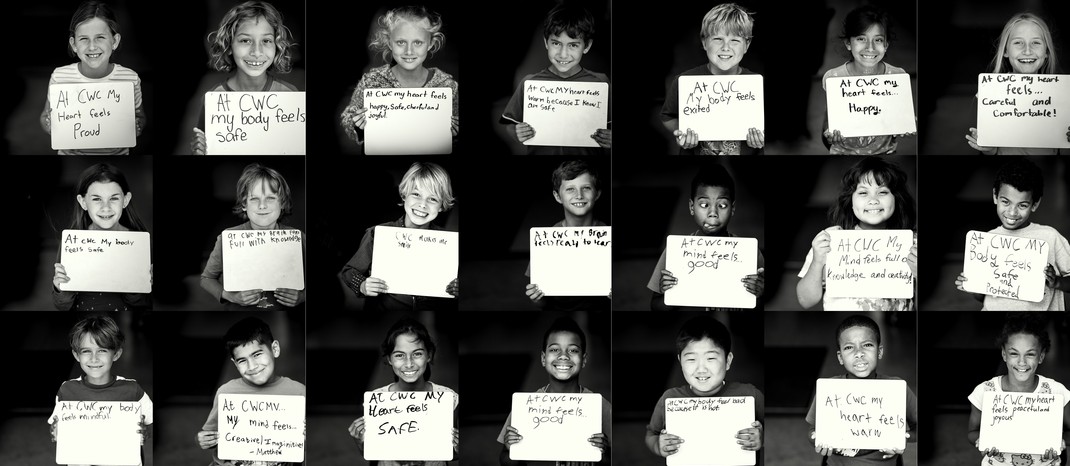 At CWC My
Heart feels
Proud
At CWC
my body feels
safe
At CWC my heart feels
happy, Safe, cheerful and
joyful.
At CWC MY heart feels
warm because I know I
am safe
At CWC
My body feels
exited
At CWC my
heart feels...
Happy.
At CWC my heart
feels...
Careful and
Comfortable!
At CWC My body
feels safe
at CWC my brain
Full with Knowledge
CWC makes me
smile
At CWC my Brain
feels ready to lear
At CWC my
mind feels..
good
At CWC My
Mind feels full of
knowledge and creativity!
At CWC MY
Body feels
Safe
and
Protected
At CWC my body
feels mindful
At CWC MV...
My mind feels...
Creative/Imaginitive
- Matthew
AT CWC MY
Heart feels
SAFE.
At CWC my
mind feels..
good
At CWC my body feel bad
because it is hot
At CWC my
heart feels
warm
At CWC my heart
feels peaceful and
joyous